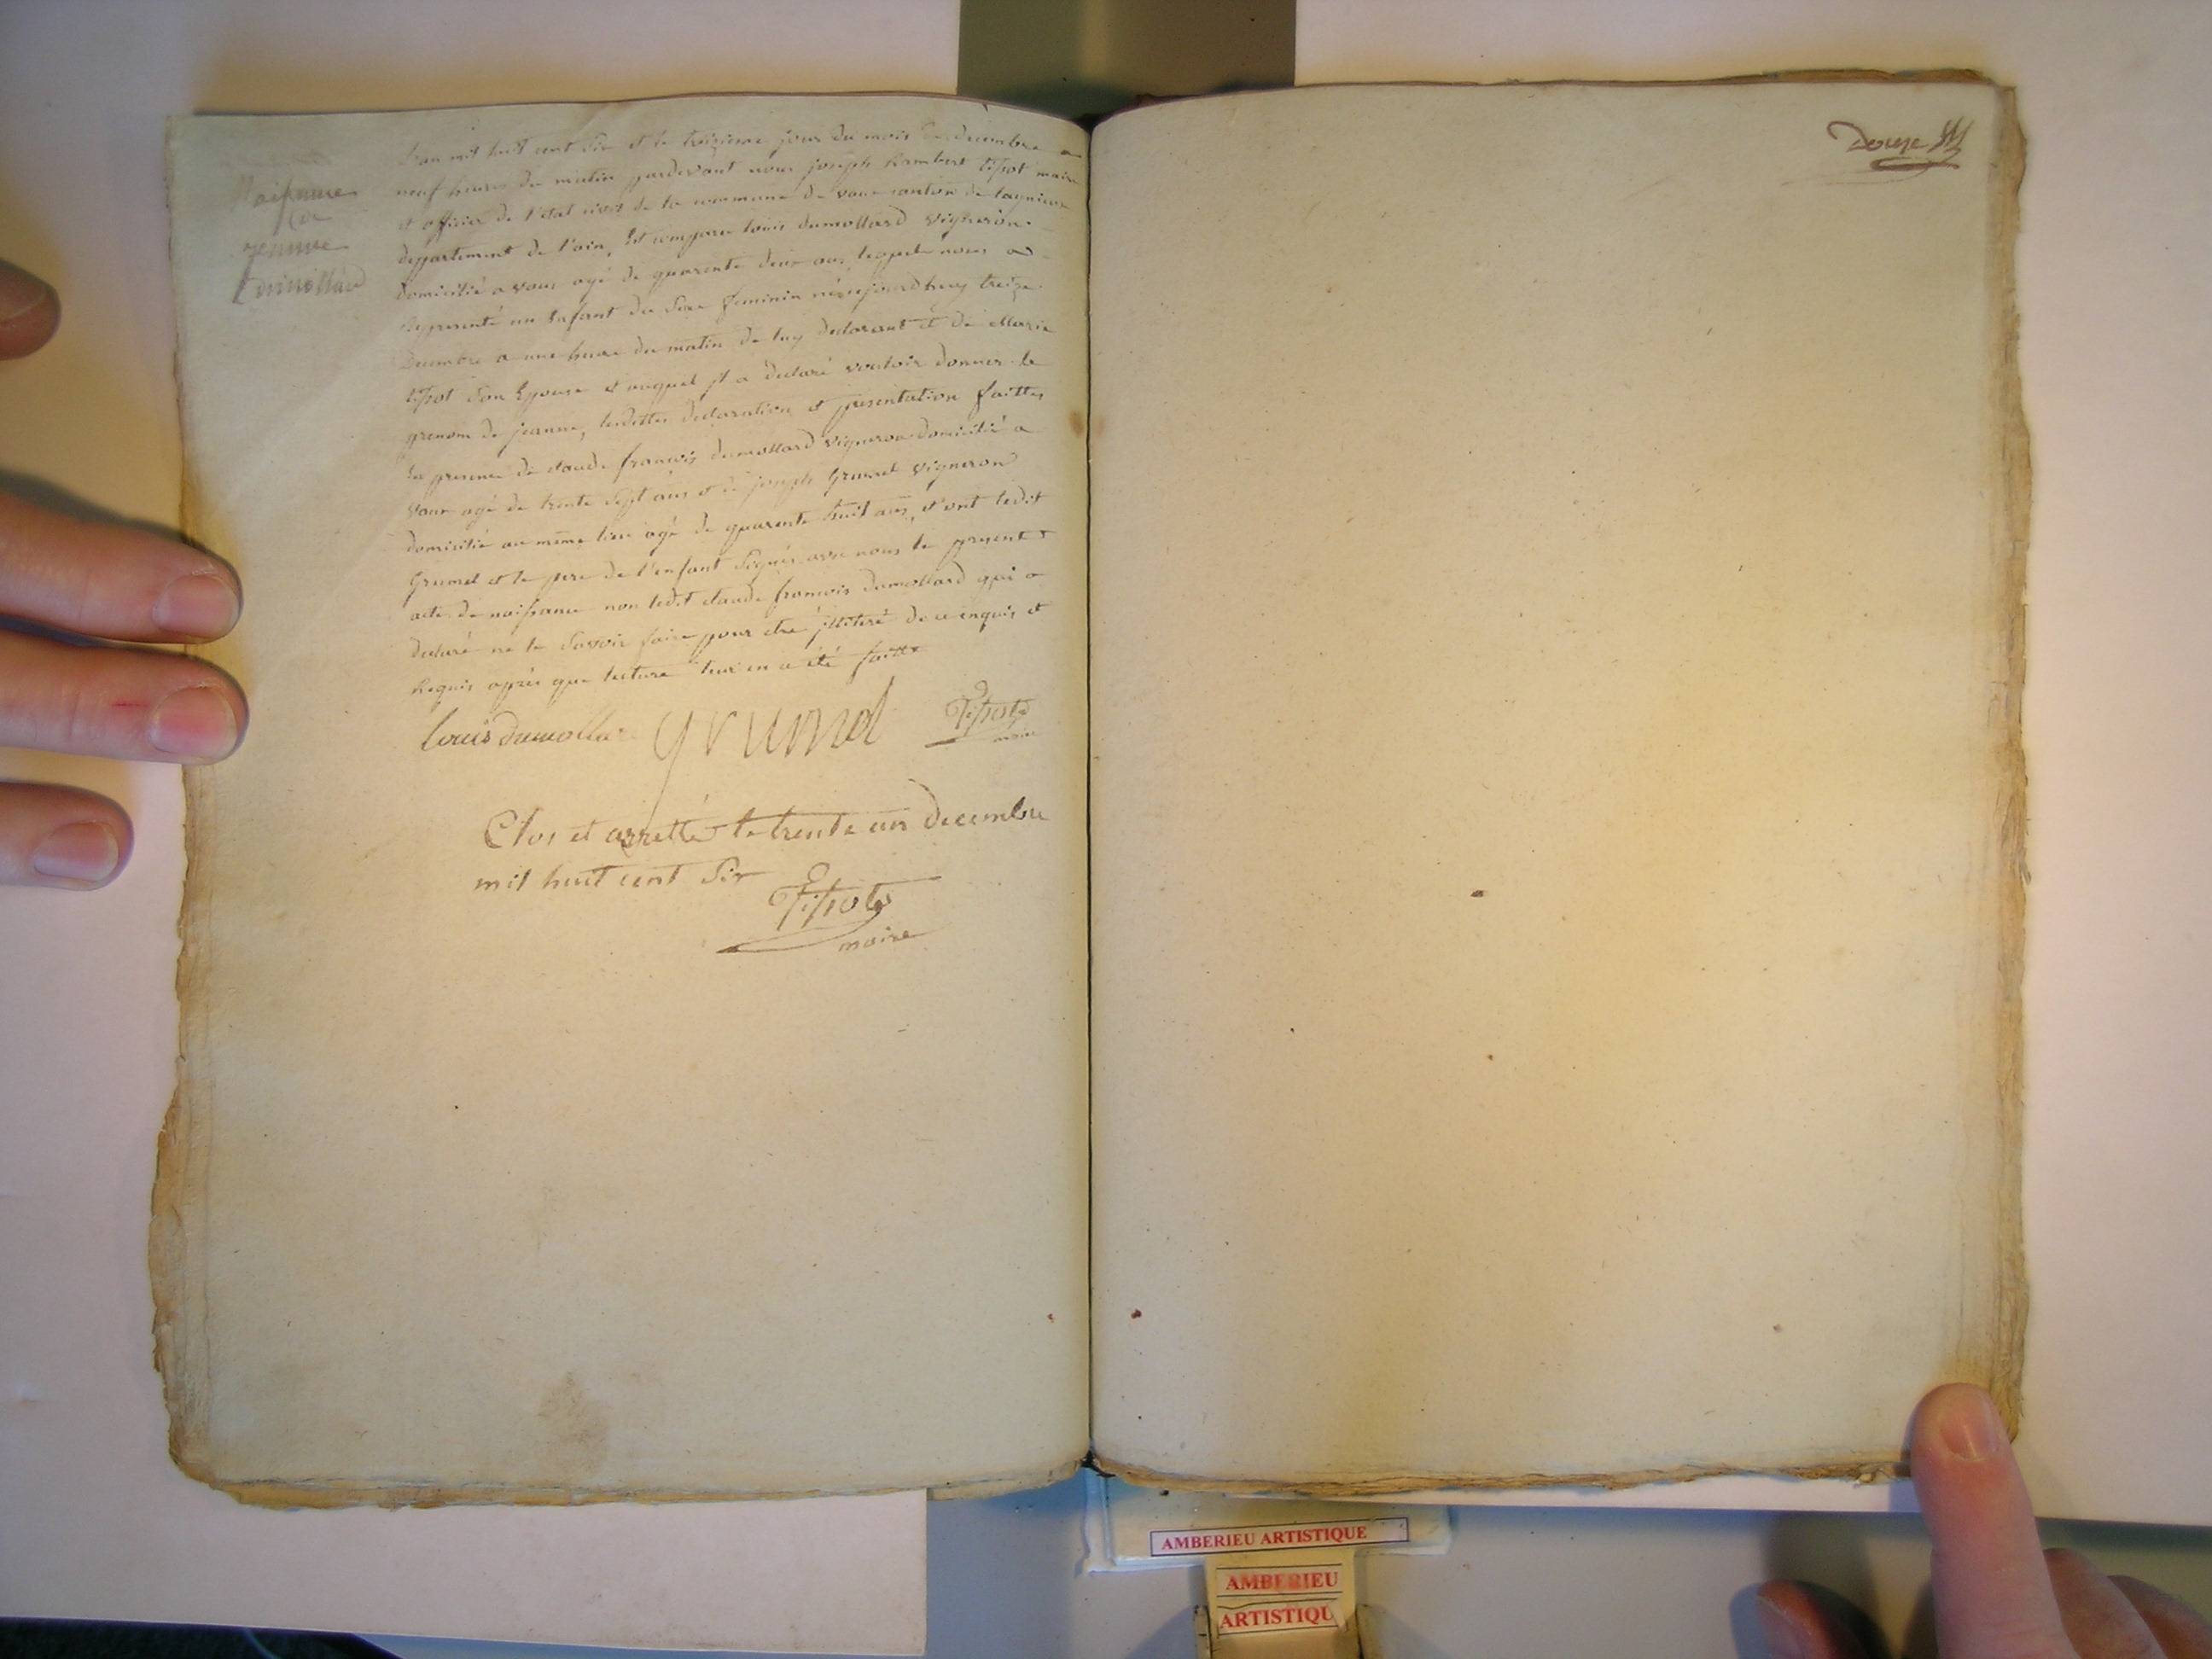 Naissance
de
jeanne
Dumollard
L'an mil huit cent dix et le treizieme jour du mois de decembre a
neuf heures du matin pardevant nous joseph Rambert tissot maire
et officier de l'état civil de la commune de vaux canton de lagnieux
departement de l'ain, Est comparu louis dumollard vigneron
domicilié a vaux agé de quarente deux ans, lequel nous a
Representé un Enfant du Sexe feminin née cejourdhuy treize
Decembre a une heure du matin de luy declarant et de Marie
tissot Son Epouse et auquel jl a declaré vouloir donner le
prenom de jeanne, lesdittes declaration et presentation faittes
En presence de claude françois dumollard vigneron domicilié a
vaux agé de trente Sept ans et de joseph Grumel vigneron
domicilié au même lieu agé de quarente huit ans, et ont ledit
Grumel et le pere de l'enfant Signés avec nous le present
acte de naissance non ledit claude françois dumollard qui a
declaré ne le Savoir faire pour etre jlliteré de ce enquis et
Requis après que lecture leur en a été faitte
louis dumollard grumel Tissot
maire
Clos et arretté le trente un decembre
mil huit cent dix
Tissot
maire
Douze
AMBERIEU ARTISTIQUE
AMBERIEU
ARTISTIQU